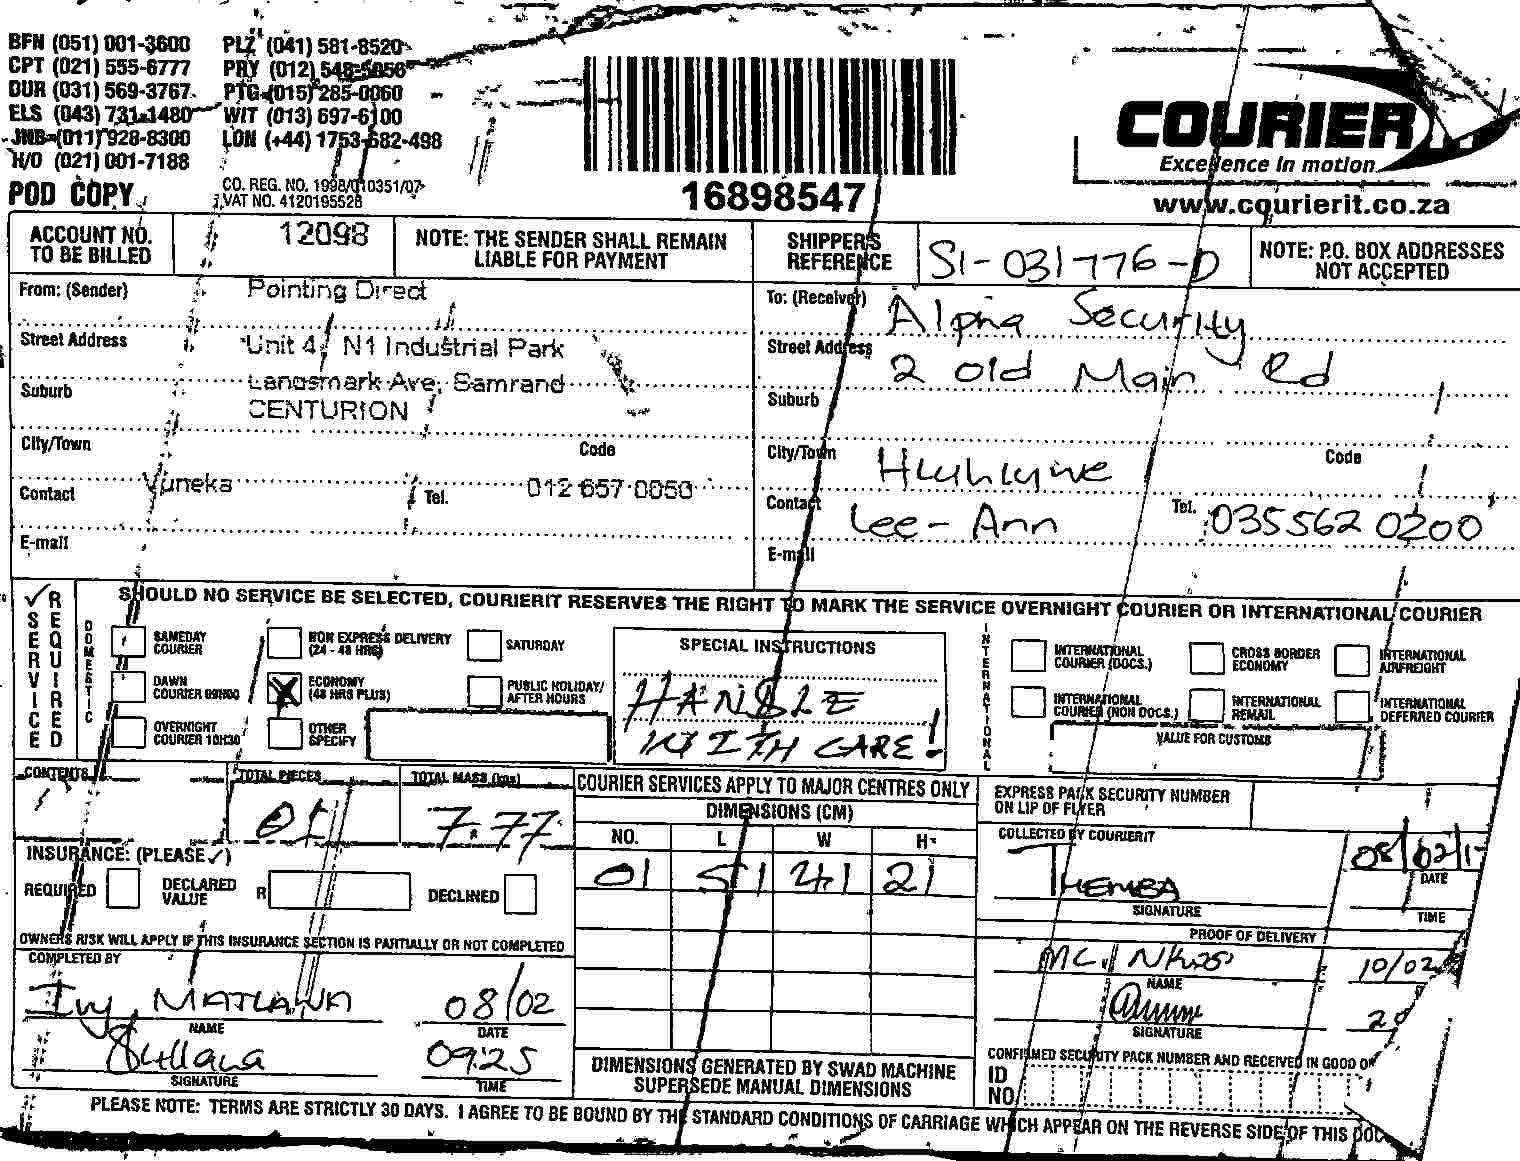 BFN (051) 001-3600 PLZ (041) 581-8520
CPT (021) 555-6777 PRY (012) 548-5056
DUR (031) 569-3767 PTG (015) 285-0060
ELS (043) 731-1480 WIT (013) 697-6100
JNB (011) 928-8300 LON (+44) 1753-682-498
H/O (021) 001-7188
POD COPY
CO. REG. NO. 1998/010351/07
VAT NO. 4120195528
16898547
COURIER IT
Excellence in motion
www.courierit.co.za
ACCOUNT NO. TO BE BILLED
12098
NOTE: THE SENDER SHALL REMAIN LIABLE FOR PAYMENT
SHIPPER'S REFERENCE
SI-031776-D
NOTE: P.O. BOX ADDRESSES NOT ACCEPTED
From: (Sender) Pointing Direct
Street Address Unit 4, N1 Industrial Park
Suburb Landsmark Ave, Samrand
CENTURION
City/Town Code
Contact Vuneka Tel. 012 657 0050
E-mail
To: (Receiver) Alpha Security
Street Address 2 Old Main Rd
Suburb
City/Town Hluhluwe Code
Contact Lee-Ann Tel. 035 562 0200
E-mail
✓ SERVICE REQUIRED
SHOULD NO SERVICE BE SELECTED, COURIERIT RESERVES THE RIGHT TO MARK THE SERVICE OVERNIGHT COURIER OR INTERNATIONAL COURIER
DOMESTIC
SAMEDAY COURIER
NON EXPRESS DELIVERY (24 - 48 HRS)
SATURDAY
DAWN COURIER 09H00
ECONOMY (48 HRS PLUS)
PUBLIC HOLIDAY/ AFTER HOURS
OVERNIGHT COURIER 10H30
OTHER SPECIFY
SPECIAL INSTRUCTIONS
HANDLE
WITH CARE!
INTERNATIONAL
INTERNATIONAL COURIER (DOCS.)
CROSS BORDER ECONOMY
INTERNATIONAL AIRFREIGHT
INTERNATIONAL COURIER (NON DOCS.)
INTERNATIONAL REMAIL
INTERNATIONAL DEFERRED COURIER
VALUE FOR CUSTOMS
CONTENTS
TOTAL PIECES 01
TOTAL MASS (kgs) 7.77
INSURANCE: (PLEASE ✓)
REQUIRED DECLARED VALUE R DECLINED
OWNERS RISK WILL APPLY IF THIS INSURANCE SECTION IS PARTIALLY OR NOT COMPLETED
COMPLETED BY
Ivy MATLAWA 08/02
NAME DATE
09:25
SIGNATURE TIME
COURIER SERVICES APPLY TO MAJOR CENTRES ONLY
DIMENSIONS (CM)
NO. L W H
01 51 41 21
DIMENSIONS GENERATED BY SWAD MACHINE SUPERSEDE MANUAL DIMENSIONS
EXPRESS PACK SECURITY NUMBER ON LIP OF FLYER
COLLECTED BY COURIERIT
THEMBA 08/02/1
SIGNATURE DATE
TIME
PROOF OF DELIVERY
MC. 10/02
NAME
SIGNATURE
CONFIRMED SECURITY PACK NUMBER AND RECEIVED IN GOOD
ID NO.
PLEASE NOTE: TERMS ARE STRICTLY 30 DAYS. I AGREE TO BE BOUND BY THE STANDARD CONDITIONS OF CARRIAGE WHICH APPEAR ON THE REVERSE SIDE OF THIS DOC